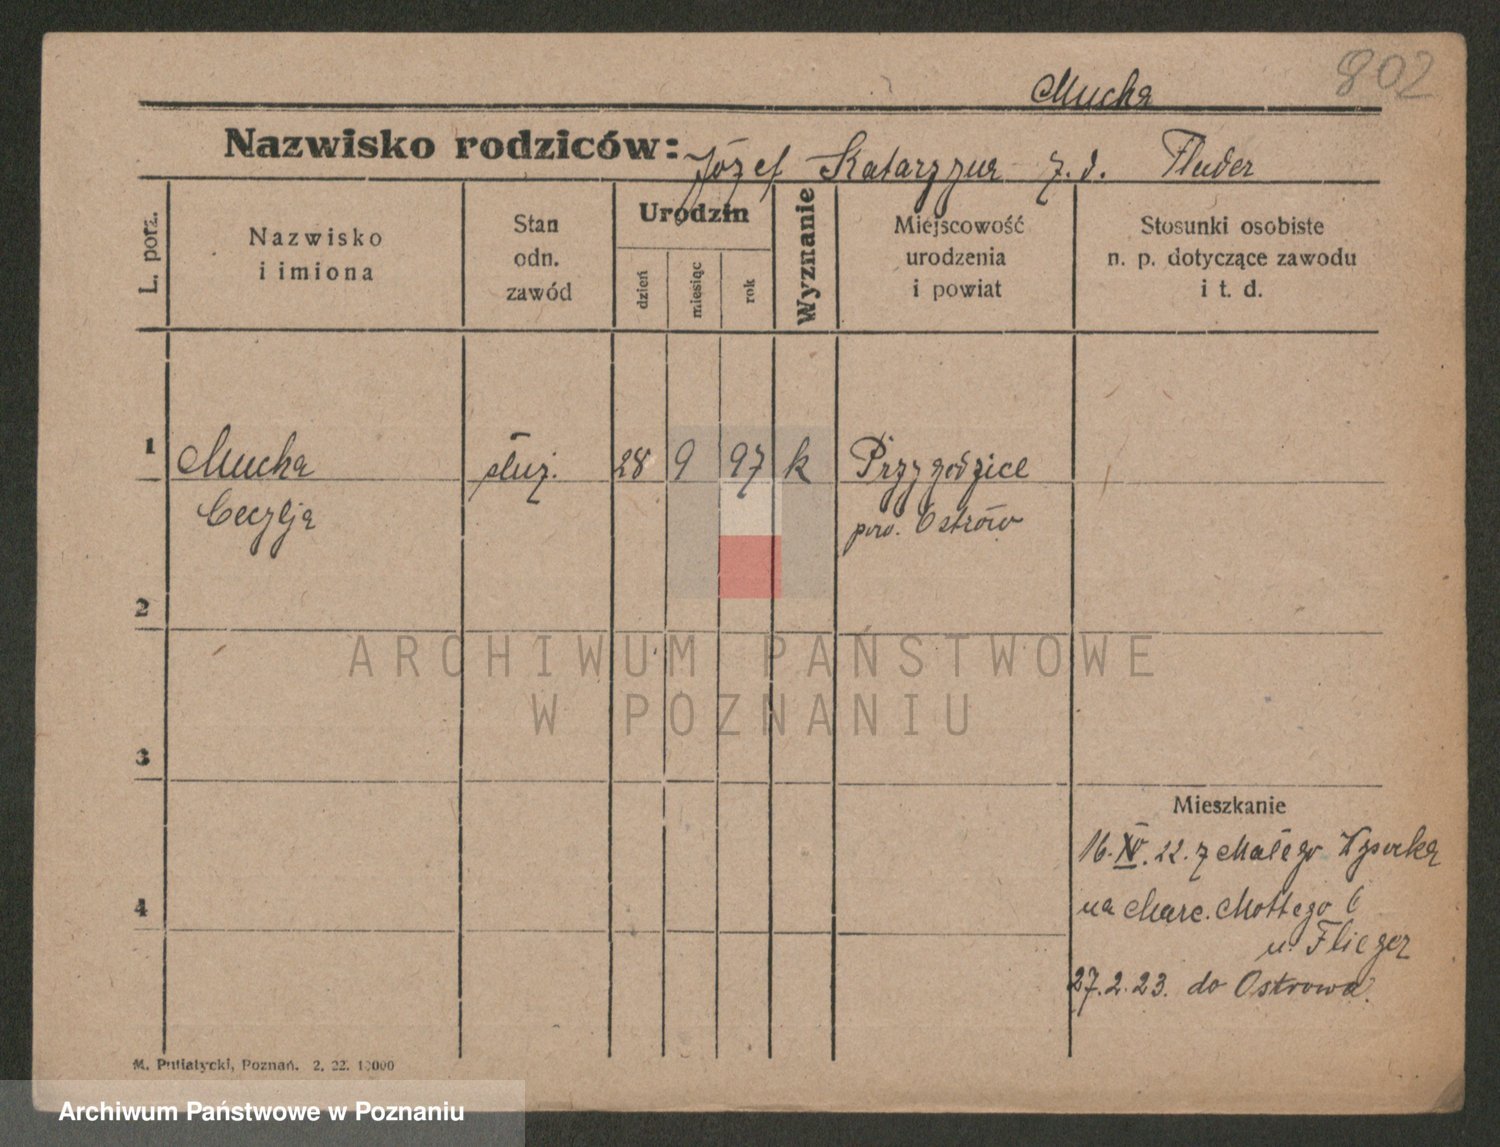 802
Mucha
Nazwisko rodziców: Józef Katarzyna z. d. Fluder
L. porz.
Nazwisko
i imiona
Stan
odn.
zawód
Urodzin
dzień
miesiąc
rok
Wyznanie
Miejscowość
urodzenia
i powiat
Stosunki osobiste
n. p. dotyczące zawodu
i t. d.
1 Mucha służ. 28 9 97 k Przygodzice
Cecylja pow. Ostrów
2
ARCHIWUM PAŃSTWOWE
W POZNANIU
3
Mieszkanie
16. IV. 22. z Małego Wysocka
4
na Marc. Mottego 6
u. Flieger
27.2.23. do Ostrowa.
M. Putiatycki, Poznań. 2, 22. 10000
Archiwum Państwowe w Poznaniu